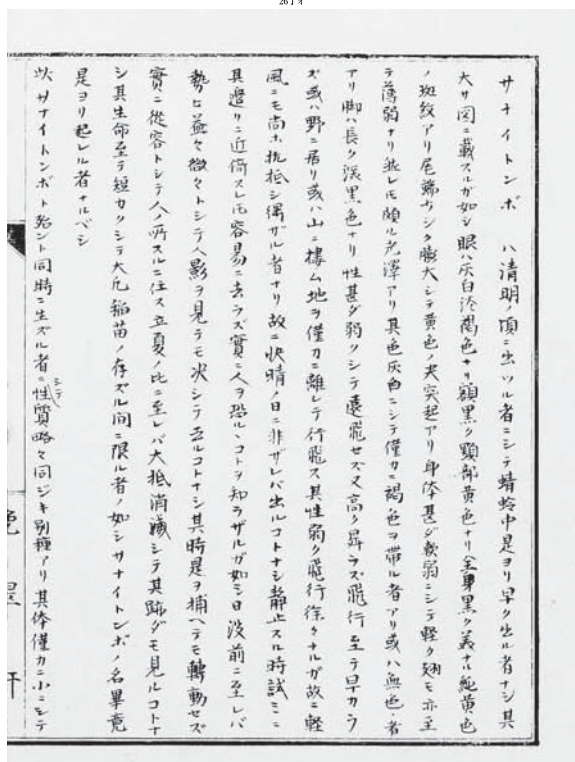 26丁オ
サナイトンボ ハ清明ノ頃ニ出ツル者ニシテ蜻蛉中是ヨリ早ク出ル者ナシ其
大サ図ニ載スルガ如シ眼ハ灰白淡褐色ナリ額黒ク顋部黄色ナリ全身黒ク美ナル純黄色
ノ斑紋アリ尾端少シク膨大シテ黄色ノ尖突起アリ身体甚ダ軟弱ニシテ軽ク翅モ亦至
テ薄弱ナリ然レ𪜈頗ル光澤アリ其色灰白ニシテ僅カニ褐色ヲ帯ル者アリ或ハ無色者
アリ脚ハ長ク深黒色ナリ性甚ダ弱クシテ遠飛セズ又高ク昇ラズ飛行至テ早カラ
ズ或ハ野ニ居リ或ハ山ニ棲ム地ヲ僅カニ離レテ行飛ス其性弱ク飛行徐々ナルガ故ニ軽
風ニモ尚ホ抗抵シ得ザル者ナリ故ニ快晴ノ日ニ非ザレバ出ルコトナシ静止スル時試ミニ
其邉リニ近倚スレ𪜈容易ニ去ラズ實ニ人ヲ恐ルヽコトヲ知ラザルガ如シ日没前ニ至レバ
勢ヒ益々微々トシテ人影ヲ見テモ决シテ去ルコトナシ其時是ヲ捕ヘテモ轉動セズ
實ニ從容トシテ人ノ所スルニ任ス立夏ノ比ニ至レバ大抵消滅シテ其跡ダモ見ルコトナ
シ其生命至テ短カクシテ大凢稲苗ノ存ズル間ニ限ル者ノ如シサナイトンボノ名畢竟
是ヨリ起レル者ナルベシ
此サナイトンボト殆ント同時ニ生ズル者ニシテ性質略々同ジキ別種アリ其体僅カニ小ニシテ